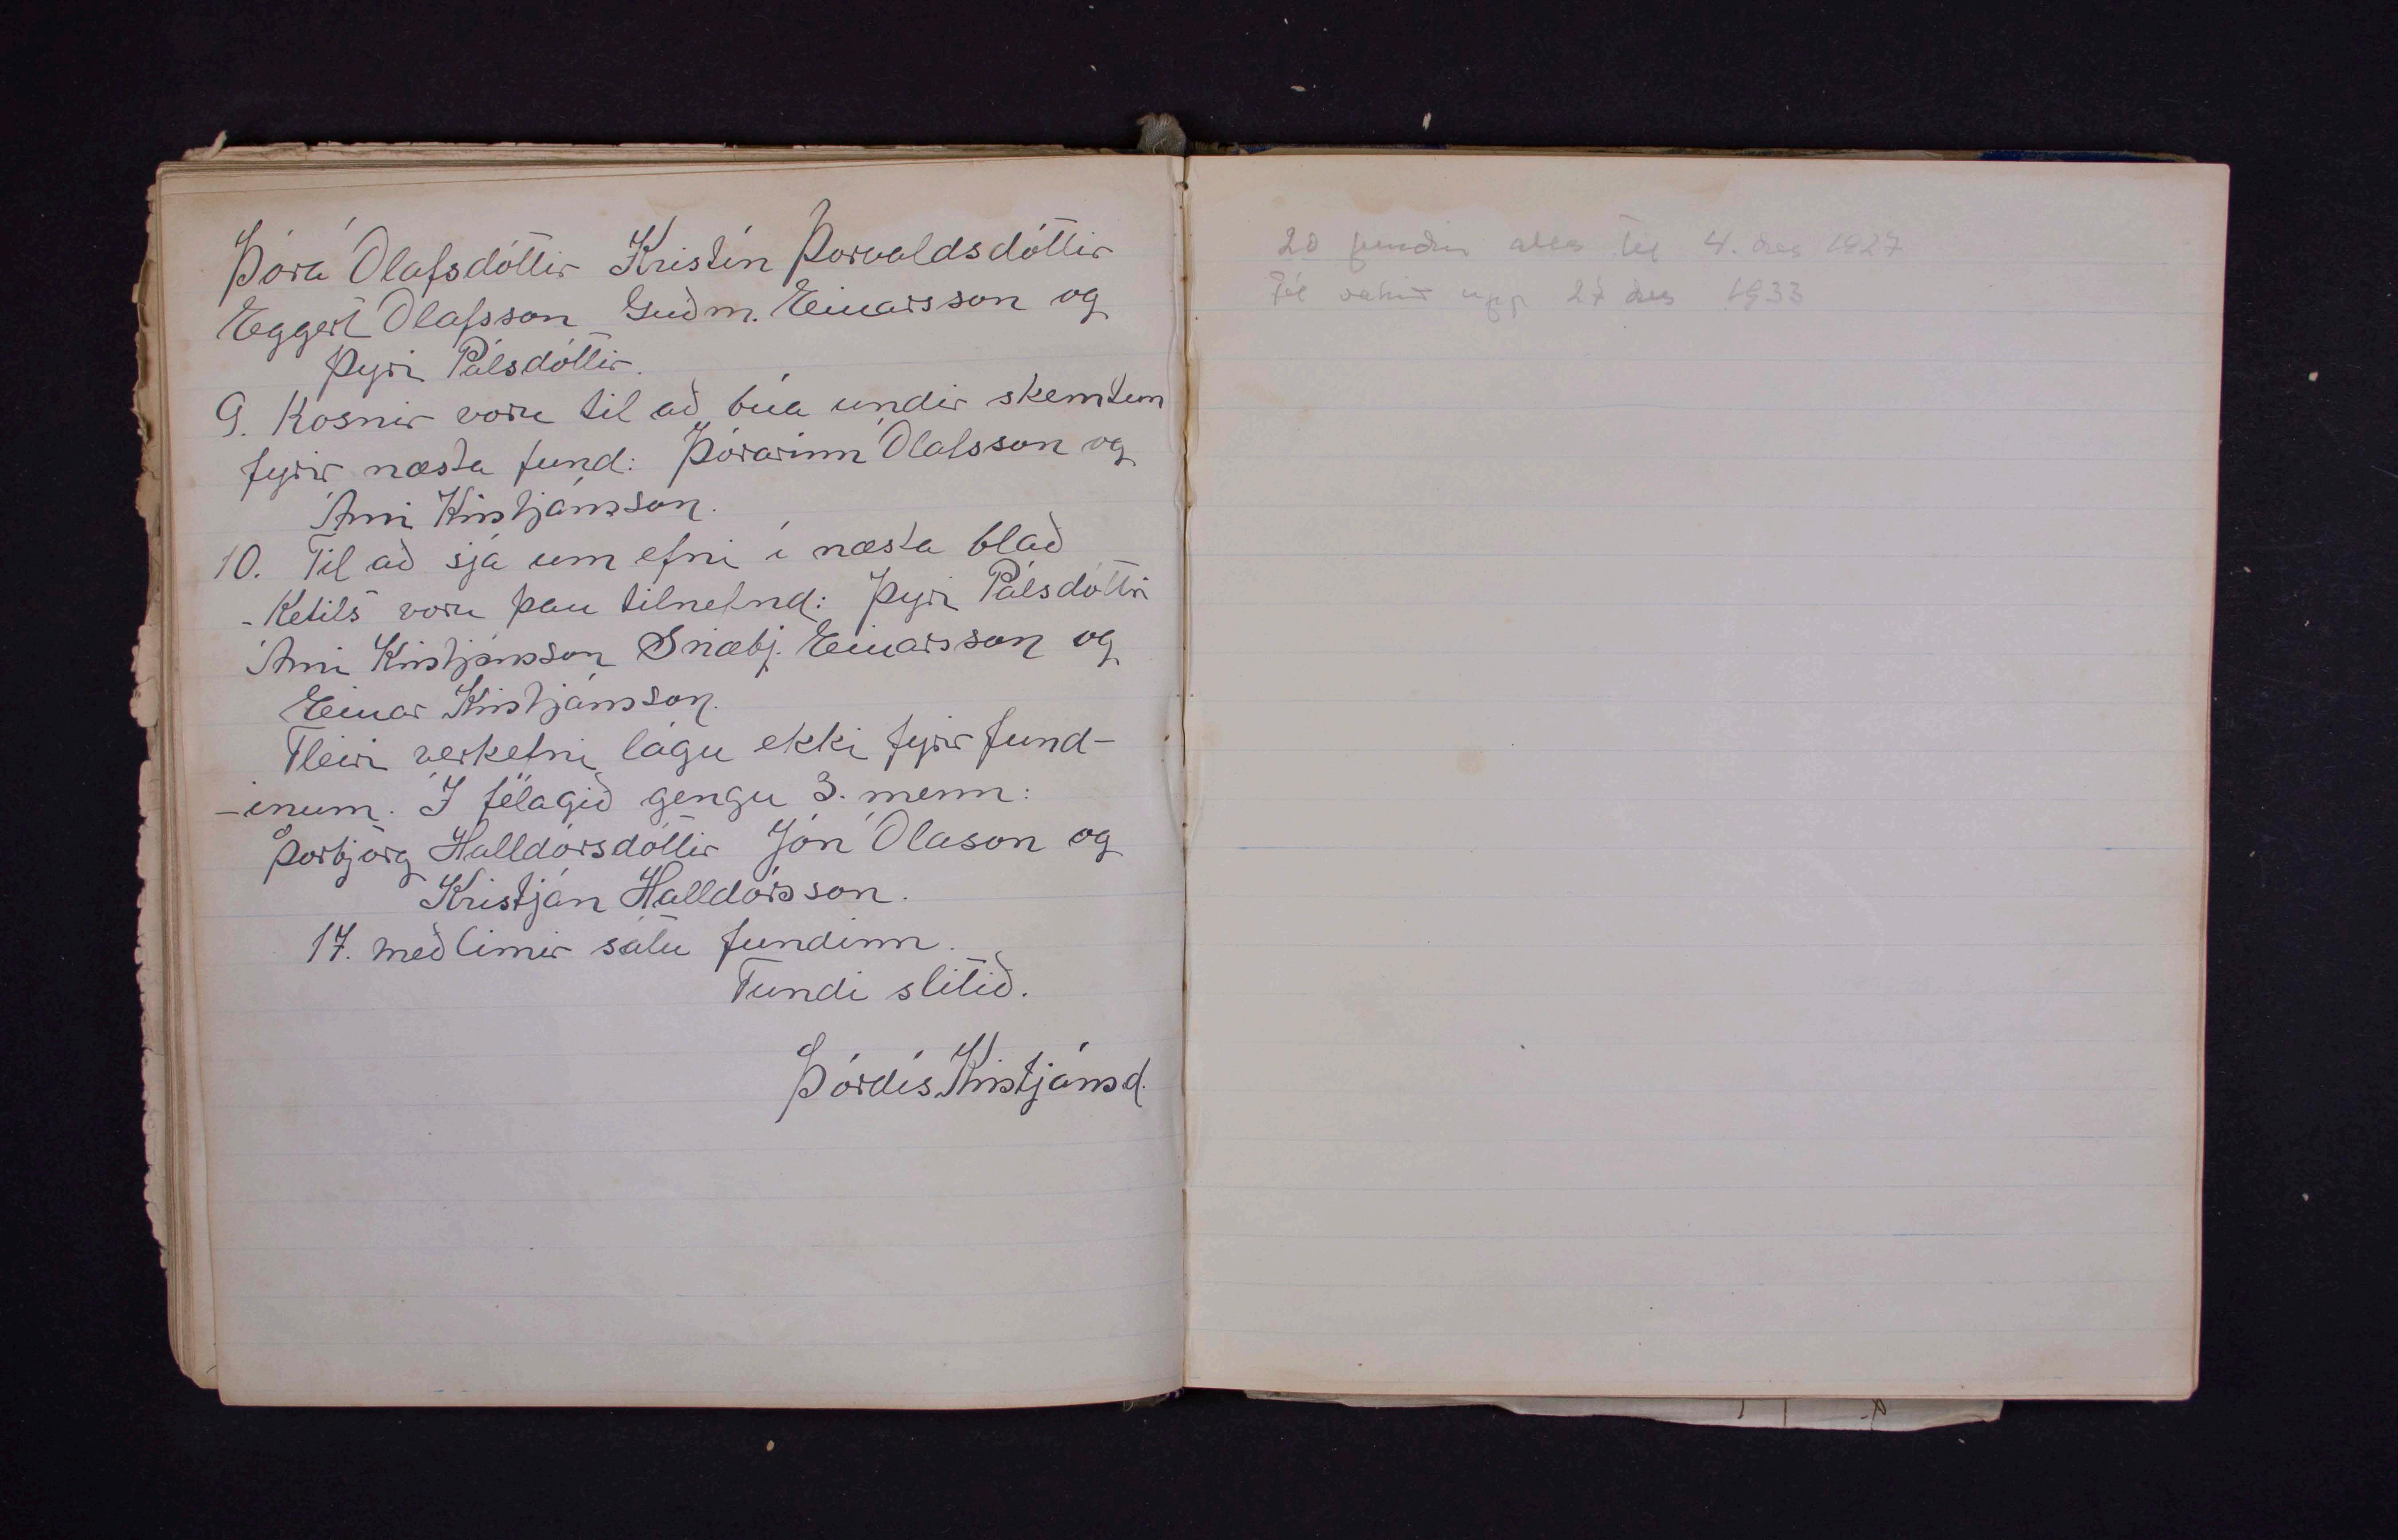 Þóra Ólafsdóttir Kristín Þorvaldsdóttir
Eggert Ólafsson Guðm. Einarsson og
Þyri Pálsdóttir.
9. Kosnir voru til að búa undir skemtun
fyrir næsta fund: Þórarinn Ólafsson og
Árni Kristjánsson.
10. Til að sjá um efni í næsta blað
-Ketils voru þau tilnefnd: Þyri Pálsdóttir
Árni Kristjánsson Snæbj. Einarsson og
Einar Kristjánsson.
Fleiri verkefni lágu ekki fyrir fund-
-inum. Í félagið gengu 3. menn:
Þorbjörg Halldórsdóttir Jón Ólason og
Kristján Halldórsson.
17. meðlimir sátu fundinn.
Fundi slitið.
Þórdís Kristjánsd.
20 fundir alls til 4. des 1927
Fél vakið upp 27 des 1933